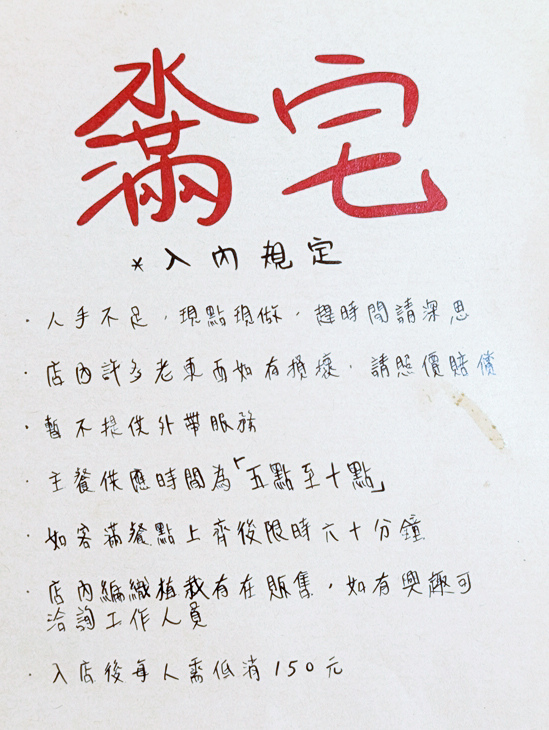 滿宅
*入內規定
·人手不足，現點現做，趕時間請深思
·店內許多老東西如有損壞，請照價賠償
·暫不提供外帶服務
·主餐供應時間為「五點至十點」
·如客滿餐點上齊後限時六十分鐘
·店內編織植栽有在販售，如有興趣可
洽詢工作人員
·入店後每人需低消150元